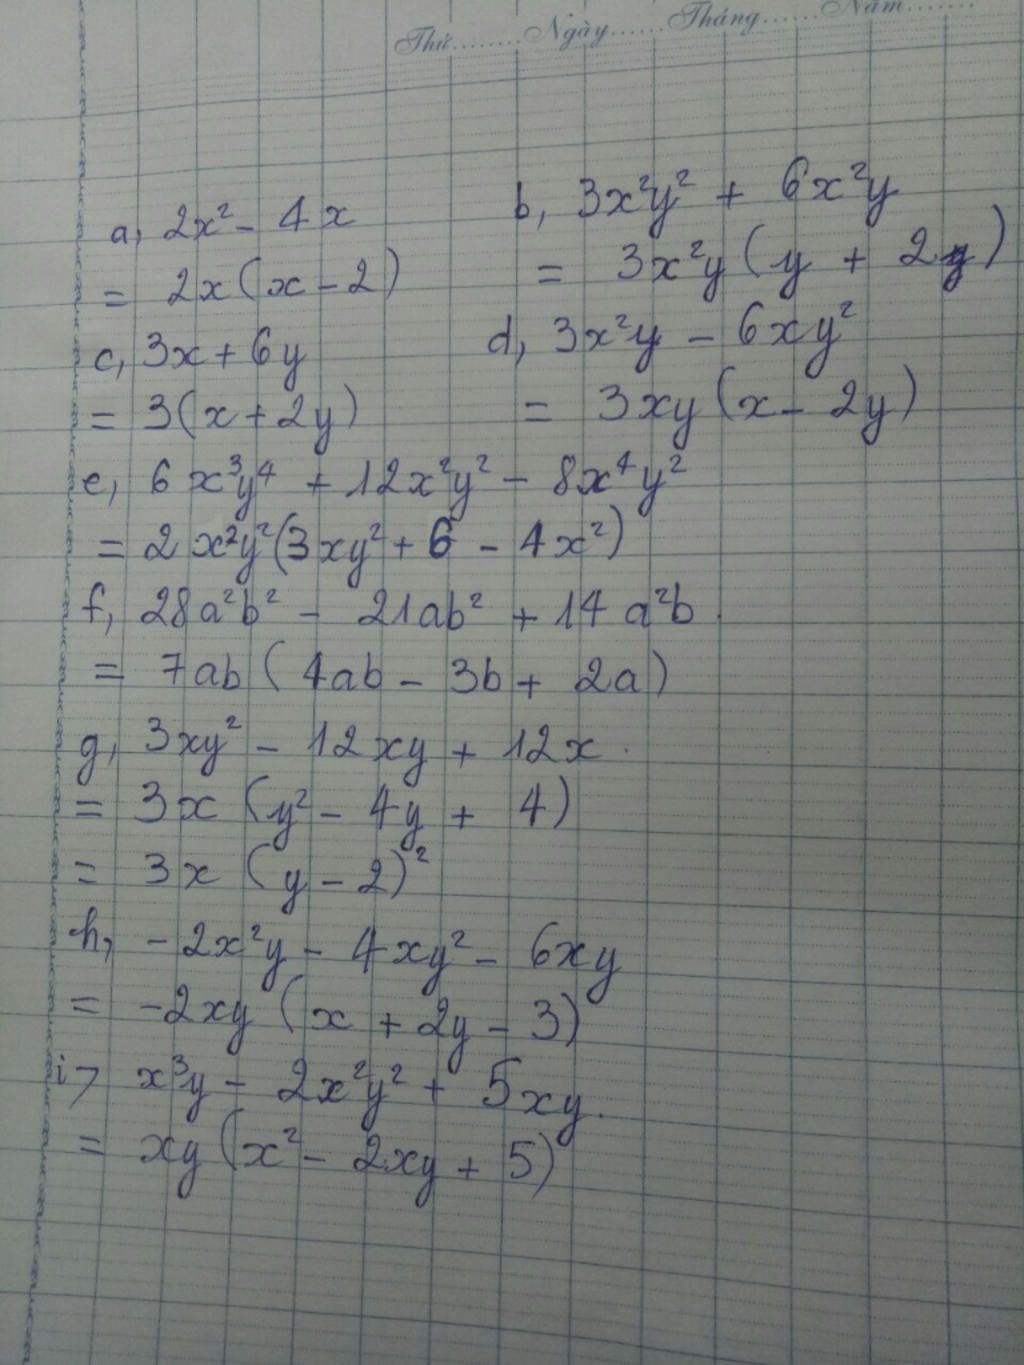 Thứ........Ngày......Tháng......Năm.......
a, 2x² - 4x
= 2x(x - 2)
b, 3x²y² + 6x²y
= 3x²y(y + 2)
c, 3x + 6y
= 3(x + 2y)
d, 3x²y - 6xy²
= 3xy(x - 2y)
e, 6x³y⁴ + 12x²y² - 8x⁴y²
= 2x²y²(3xy² + 6 - 4x²)
f, 28a²b² - 21ab² + 14a²b.
= 7ab(4ab - 3b + 2a)
g, 3xy² - 12xy + 12x.
= 3x(y² - 4y + 4)
= 3x(y - 2)²
h, -2x²y - 4xy² - 6xy
= -2xy(x + 2y - 3)
i> x³y - 2x²y² + 5xy.
= xy(x² - 2xy + 5)